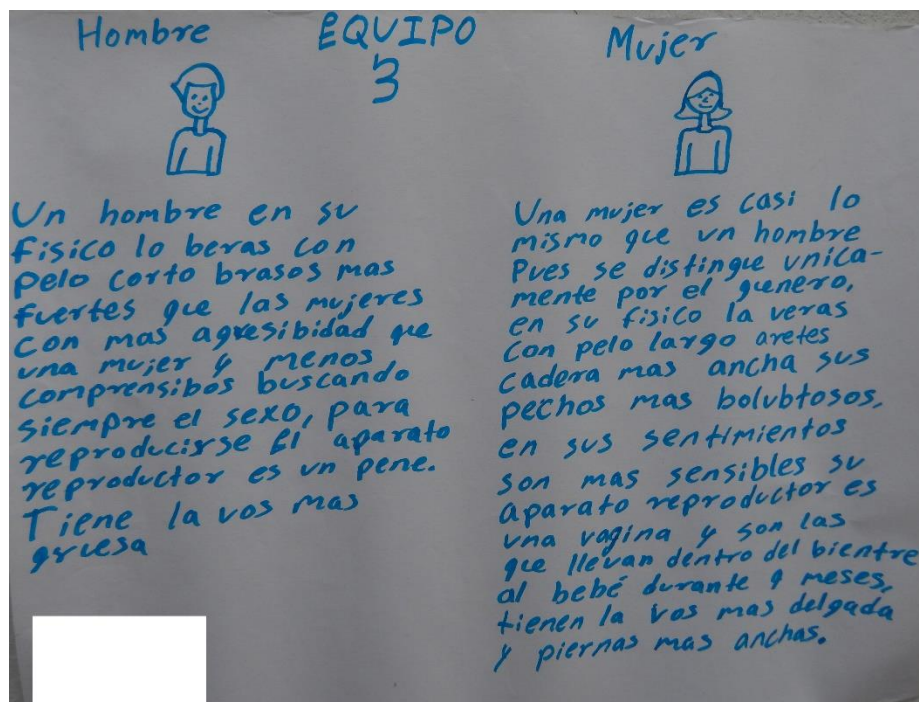 Hombre
EQUIPO
3
Mujer
Un hombre en su
fisico lo beras con
pelo corto brasos mas
fuertes que las mujeres
con mas agresibidad que
una mujer y menos
comprensibos buscando
siempre el sexo, para
reproducirse El aparato
reproductor es un pene.
Tiene la vos mas
gruesa
Una mujer es casi lo
mismo que un hombre
Pues se distingue unica-
mente por el genero,
en su fisico la veras
con pelo largo aretes
cadera mas ancha sus
pechos mas bolubtosos,
en sus sentimientos
son mas sensibles su
aparato reproductor es
una vagina y son las
que llevan dentro del bientre
al bebé durante 9 meses,
tienen la vos mas delgada
y piernas mas anchas.